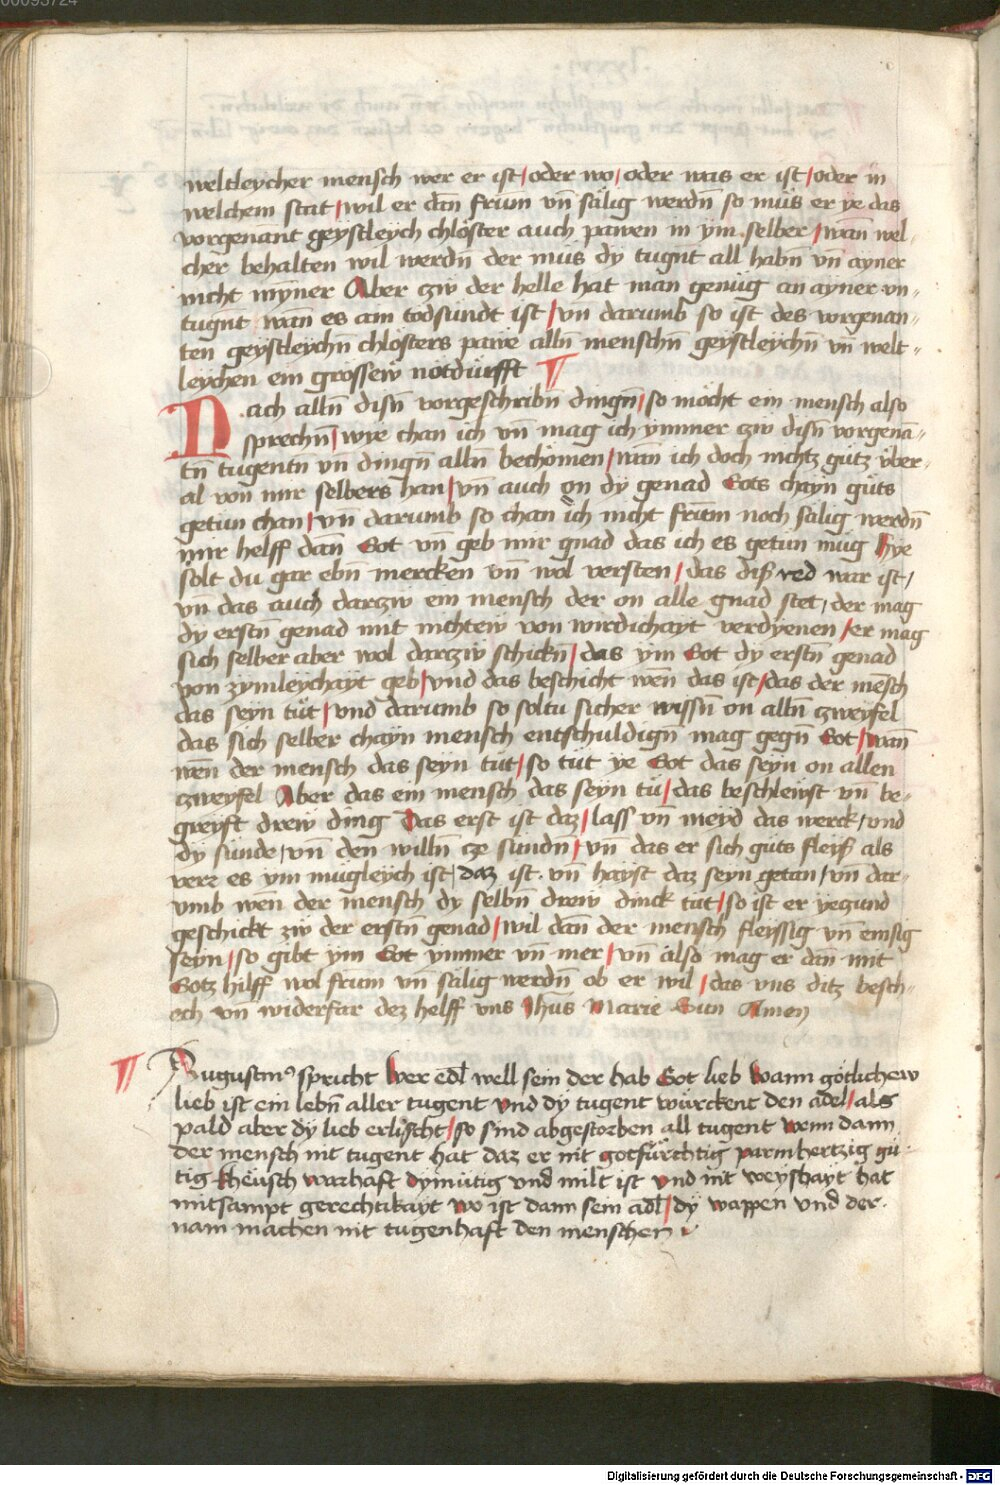 weltleycher mensch wer er ist / oder wo / oder was er ist / oder in
welchem stat / wil er dan̄ frum vn̄ sälig werdn̄ so müs er ye das
vorgenant geystleych chlöster auch pawen in ym selber / wan̄ wel-
cher behalten wil werdn̄ der müs dy tugnt all habn̄ vn̄ ayner
nicht mynner Aber czw der helle hat man genüg an ayner vn-
tugnt wan̄ es ain todsündt ist / vn̄ darumb so ist des vorgenan-
ten geystleychn̄ chlösters pawe alln̄ menschn̄ geystleychn̄ vn̄ welt-
leychen ein grossew notdürfft ¶
Nach alln̄ disn̄ vorgeschribn̄ dingn̄ / so möcht ein mensch also
sprechn̄ / wye chan ich vn̄ mag ich ymmer czw disn̄ vorgenā-
tn̄ tugentn̄ vn̄ dingn̄ alln̄ bechömen / wan̄ ich doch nichtz gütz vber-
al von mir selbers han / vn̄ auch on dy genad Gots chayn güts
getun chan / vn̄ darumb so chan ich nicht frum noch sälig werdn̄
mir helff dan̄ Got vn̄ geb mir gnad das ich es getün müg Hye
solt du gar ebn̄ mercken vn̄ wol versten / das diß red war ist /
vn̄ das auch darczw ein mensch der on alle gnad stet / der mag
dy erstn̄ genad mit nichtew von wirdichayt verdyenen / er mag
sich selber aber wol darczw schickn̄ / das ym Got dy erstn̄ genad
von zymleychayt geb / vnd das beschicht wen̄ das ist / das der mēsch
das seyn tüt / vnd darumb so soltu sicher wissn̄ on alln̄ czweyfel
das sich selber chayn mensch entschuldign̄ mag gegn̄ Got / wan̄
wen̄ der mensch das seyn tut / so tüt ye Got das seyn on allen
czweyfel Aber das ein mensch das seyn tü / das beschlewst vn̄ be-
greyft drew ding Das erst ist daz / lass vn̄ meyd das werck / vnd
dy sünde / vn̄ den willn̄ cze sundn̄ / vn̄ das er sich güts fleyß als
verr es ym mügleych ist / daz ist vn̄ hayst daz seyn getan / vn̄ dar-
vmb wen̄ der mensch dy selbn̄ drew dinck tut / so ist er yeczund
geschickt zw der erstn̄ genad / wil dan̄ der mensch fleyssig vn̄ emsig
seyn / so gibt ym Got ymmer vn̄ mer / vn̄ also mag er dan̄ mit
Gotz hilff wol frum vn̄ sälig werdn̄ ob er wil / das vns ditz besch-
ech vn̄ widerfar dez helff vns Jhūs Marie Sun Amen
¶ Augustin⁹ spricht Wer edl well sein der hab Got lieb Wann götlichew
lieb ist ein lebn̄ aller tugent vnd dy tugent würckent den adel / als
pald aber dy lieb erlischt / so sind abgestorben all tugent wenn dann
der mensch nit tugent hat daz er nit gotfürchtig parmhertzig gü-
tig khëusch warhaft dymütig vnd milt ist vnd nit weyshayt hat
mitsampt gerechtikayt wo ist dann sein adl / dy wappen vnd der
nam machen nit tugenhaft den menschen
Digitalisierung gefördert durch die Deutsche Forschungsgemeinschaft - DFG